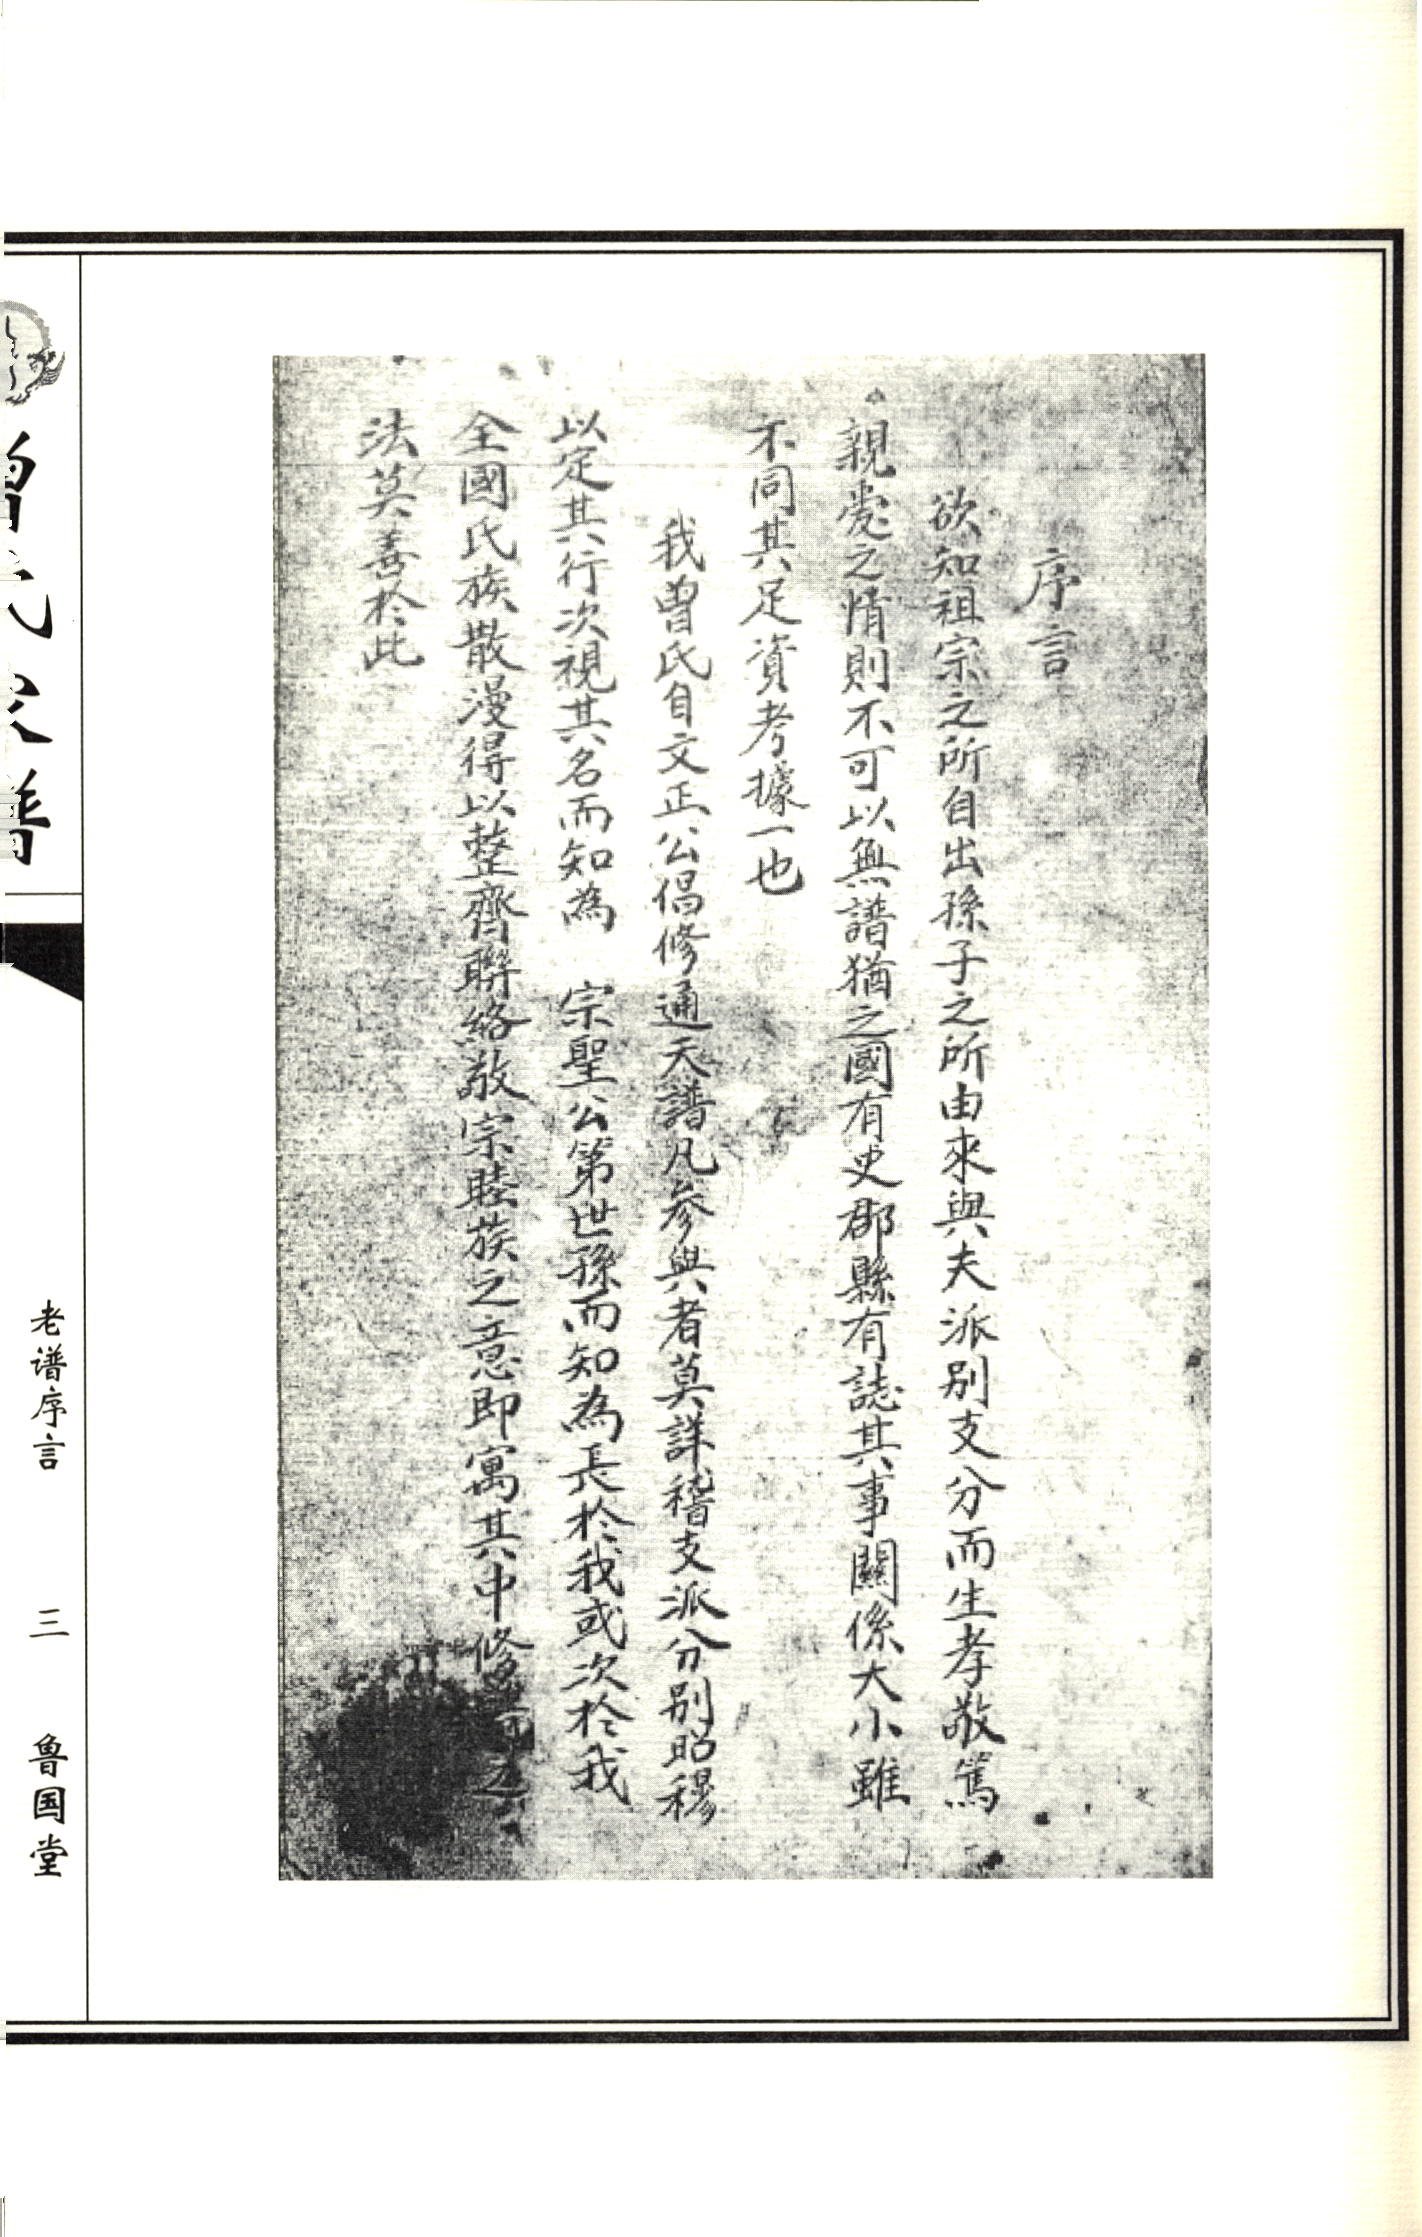 序言
欲知祖宗之所自出孫子之所由來與夫派別支分而生孝敬篤
親愛之情則不可以無譜猶之國有史郡縣有誌其事關係大小雖
不同其足資考據一也
我曾氏自文正公倡修通天譜凡參與者莫詳稽支派分別昭穆
以定其行次視其名而知為 宗聖公第世孫而知為長於我或次於我
全國氏族散漫得以整齊聯絡敬宗睦族之意即寓其中修
法莫善於此
氏家譜
老谱序言
三
鲁国堂